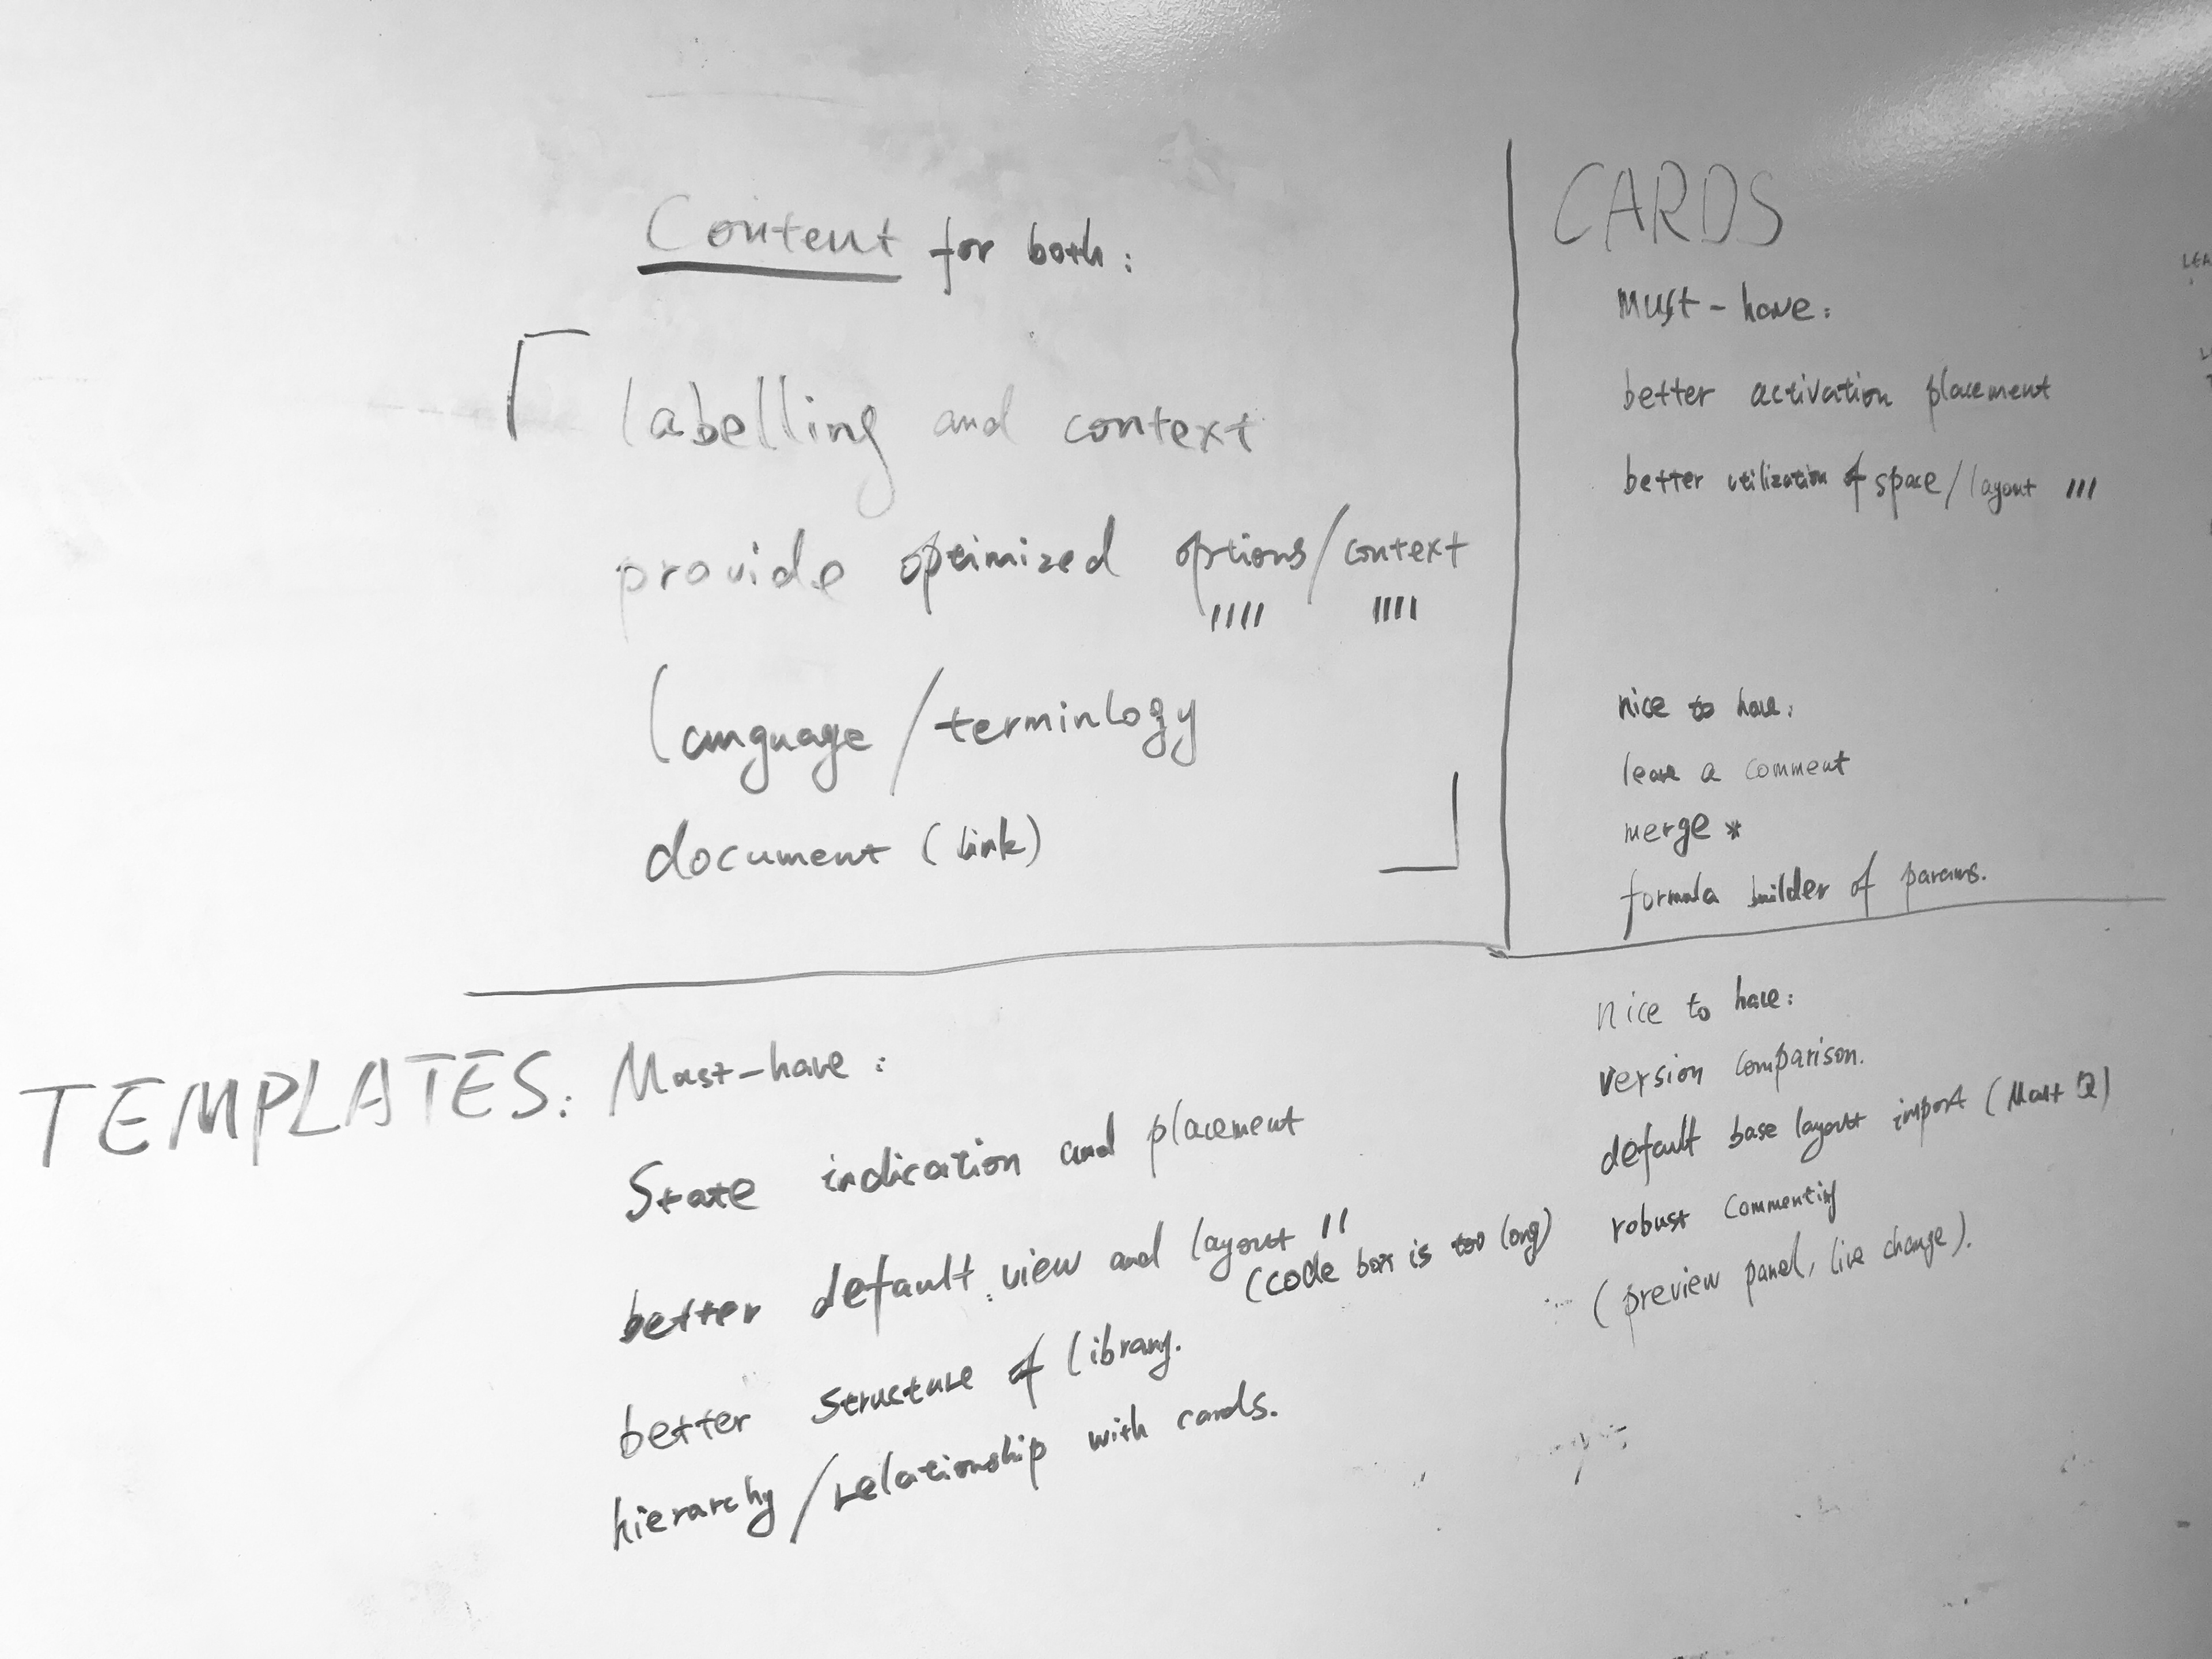 Content for both:
labelling and context
provide optimized options/context
IIII IIII
language/terminlogy
document (link)
CARDS
must-have:
better activation placement
better utilization of space/layout III
nice to have:
leave a comment
merge *
formula builder of params.
TEMPLATES: Must-have:
State indication and placement
better default view and layout II
(code box is too long)
better structure of library.
hierarchy/relationship with cards.
nice to have:
version comparison.
default base layout import (
robust commenting
(preview panel, live change).
LEA